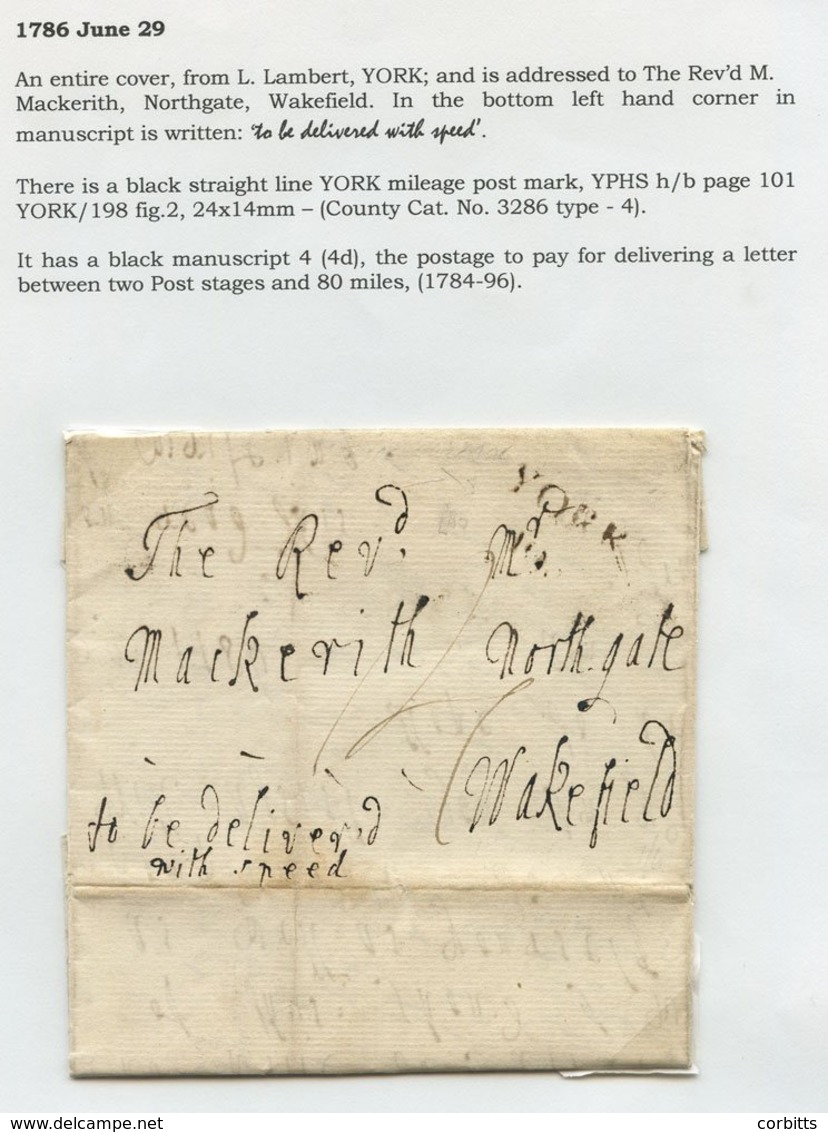 1786 June 29
An entire cover, from L. Lambert, YORK; and is addressed to The Rev'd M.
Mackerith, Northgate, Wakefield. In the bottom left hand corner in
manuscript is written: 'to be delivered with speed'.
There is a black straight line YORK mileage post mark, YPHS h/b page 101
YORK/198 fig.2, 24x14mm – (County Cat. No. 3286 type - 4).
It has a black manuscript 4 (4d), the postage to pay for delivering a letter
between two Post stages and 80 miles, (1784-96).
YORK
The Revd. Mr.
Mackerith Northgate
Wakefield
to be deliver'd
with speed
www.delcampe.net
corbitts